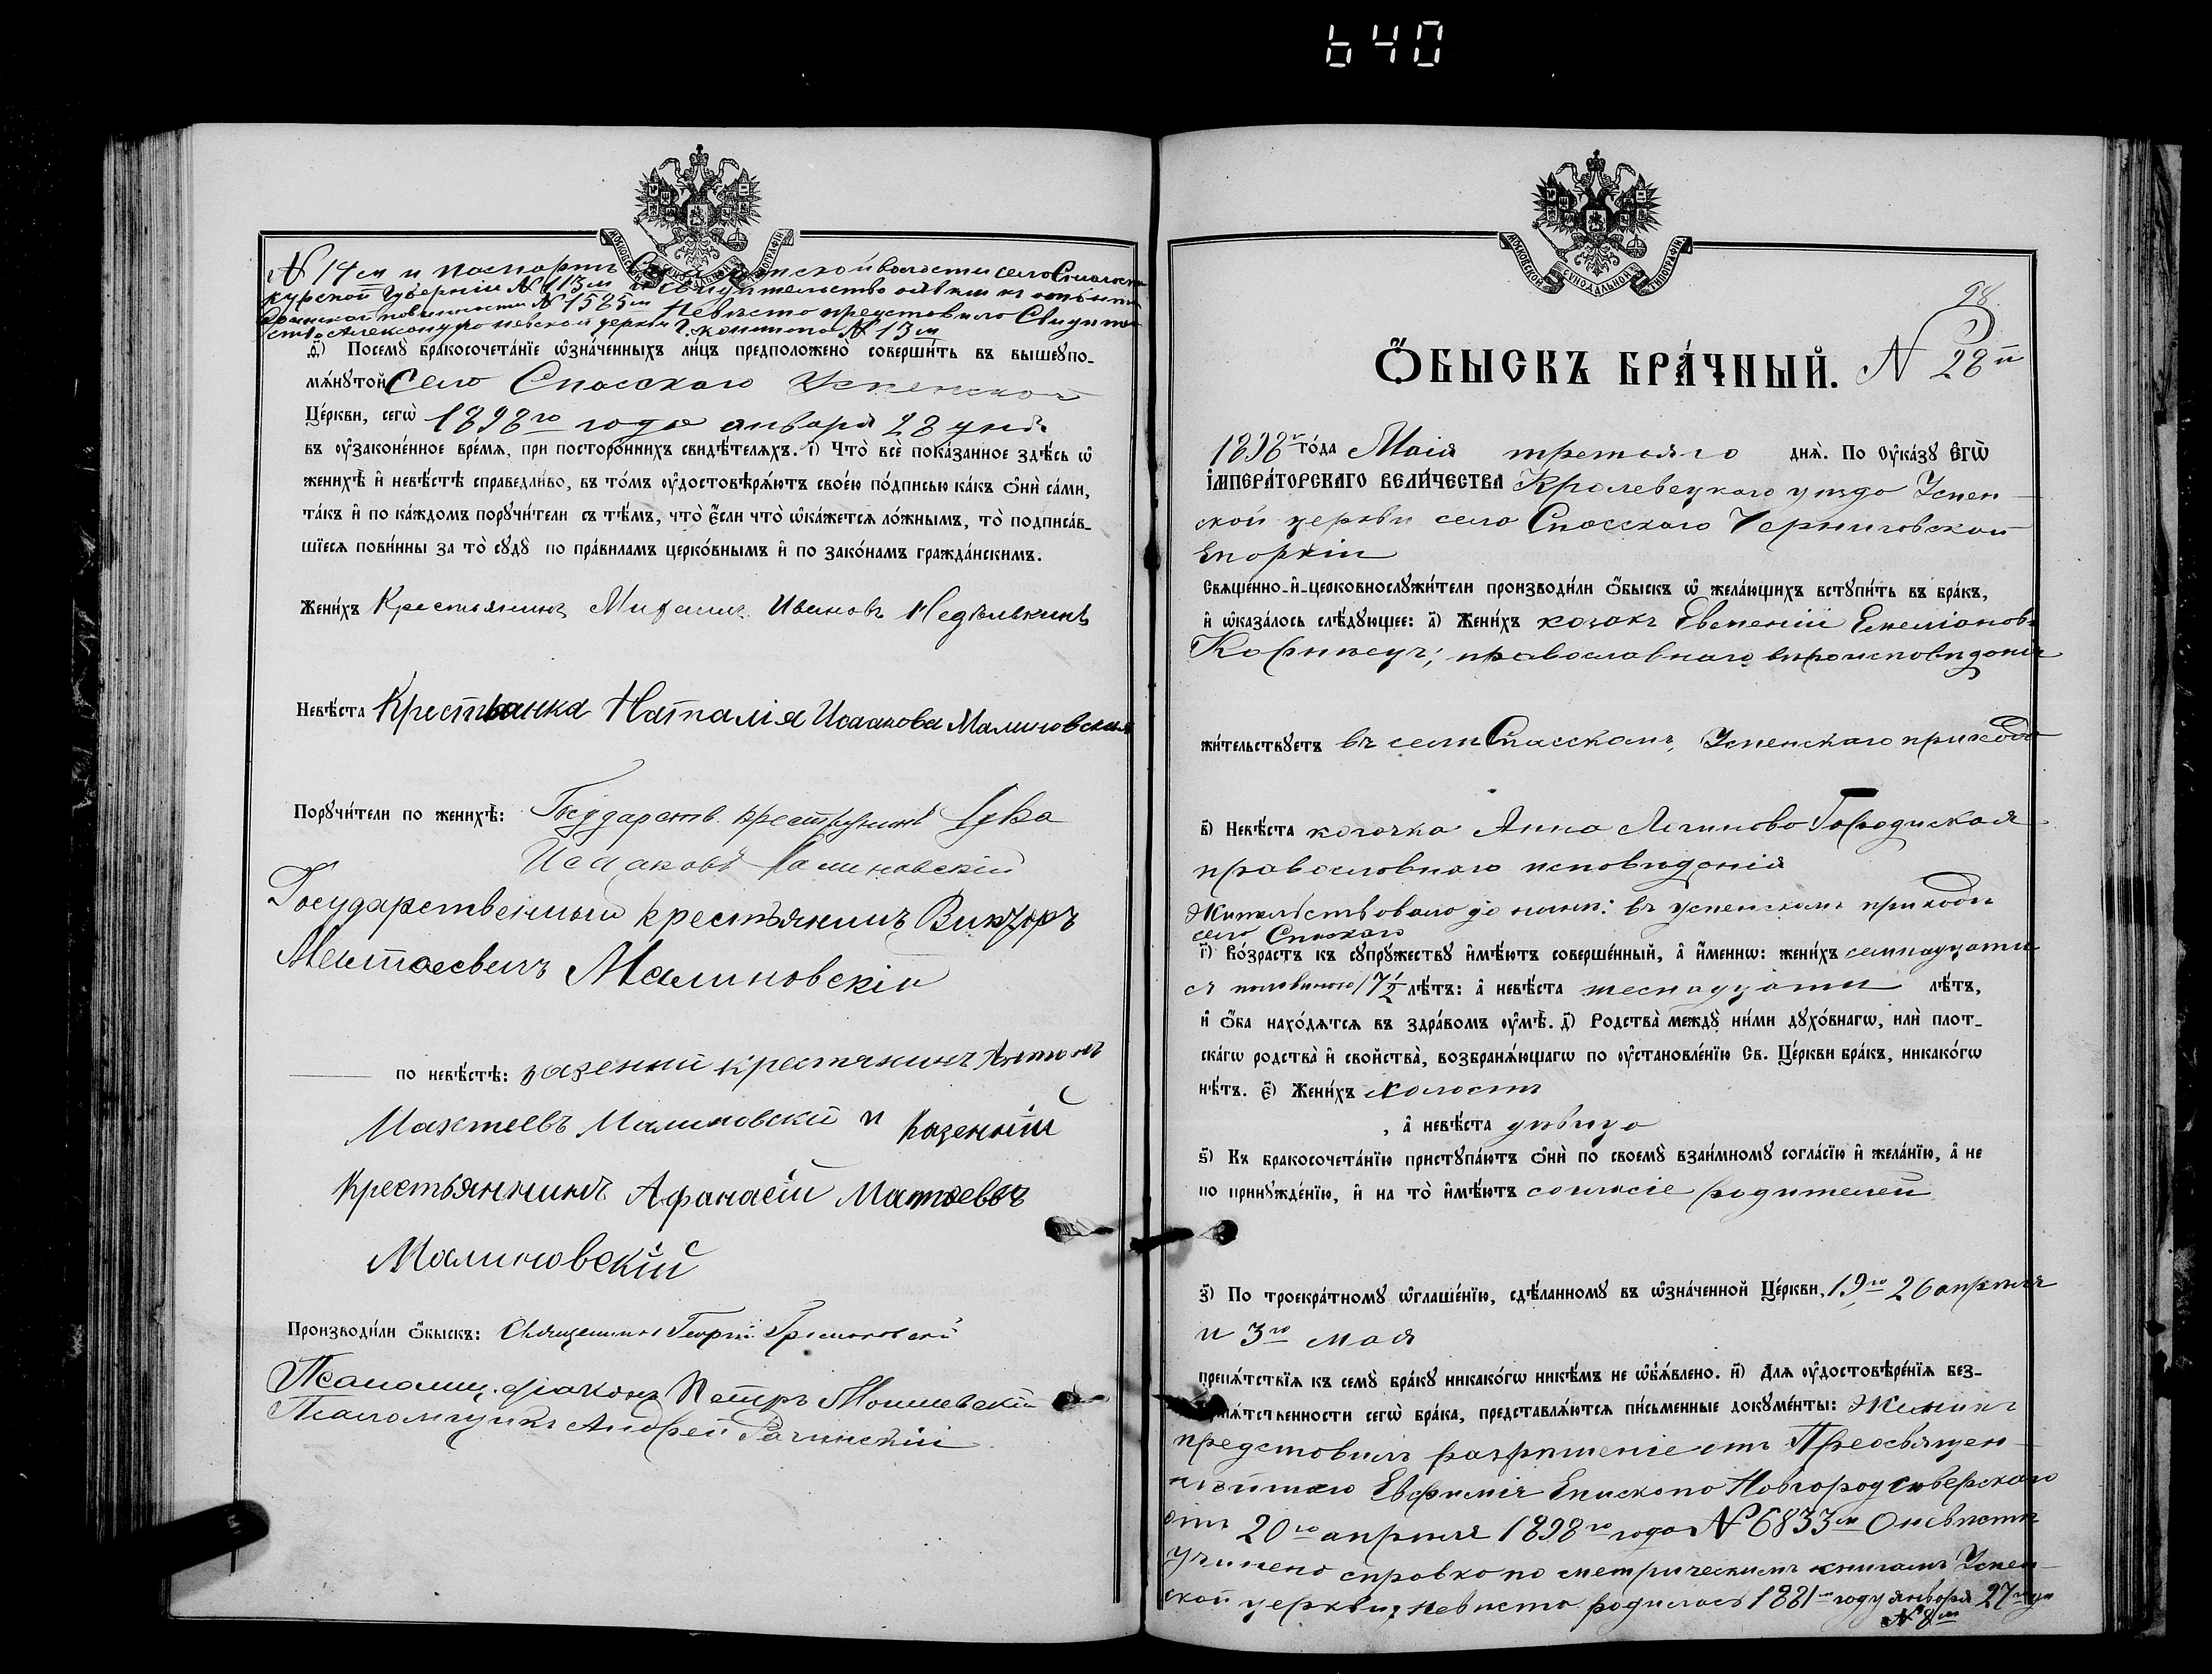 640
МОСКОВСКОЙ СѴНОДАЛЬНОЙ ТИПОГРАФІИ
N 14 м и паспортъ волости село
Курской Губерніи N 113 м и свидѣтельство о явкѣ къ
воинской повинности N 1585 м Невѣста представила Свидѣтель
ство Александро невской церкви г. N 13 м
ѳ҃) Посемꙋ̀ бракосочета́нїе ѡ҆зна́ченныхъ ли́цъ предположено̀ соверши́ть въ вышеꙋпо-
мѧ́нꙋтой Село Спасскаго Успенской
Це́ркви, сегѡ̀ 1898 го года января 28 дня
въ ᲂу҆законе́нное вре́мѧ, при посторо́ннихъ свидѣ́телѧхъ. і҃) Что̀ всѐ пока́занное здѣ́сь ѡ҆
женихѣ̀ и҆ невѣ́стѣ справедли́во, въ то́мъ ᲂу҆достовѣрѧ́ютъ свое́ю по́дписью ка́къ ѻ҆нѝ са́ми,
та́къ и҆ по ка́ждомъ порꙋчи́тели съ тѣ́мъ, что̀ є҆́сли что̀ ѡ҆ка́жетсѧ ло́жнымъ, то̀ подписа́в-
шїесѧ пови́нны за то̀ сꙋдꙋ̀ по пра́виламъ церко́внымъ и҆ по зако́намъ гражда́нскимъ.
Жени́хъ Крестьянинъ Михаилъ Ивановъ Недѣлькинъ
Невѣ́ста Крестьянка Наталія Исаакова Малиновская
Порꙋчи́тели по женихѣ̀: Государств. крестьянинъ Лука
Исааковъ Малиновскій
Государственный крестьянинъ Викторъ
Матвеевичъ Малиновскій
по невѣ́стѣ: казений крестянинъ Антонъ
Махтеевъ Малиновский и Казенный
Крестьяннинъ Афанасій Матвевъ
Малиновскій
Производи́ли ѻ҆́быскъ: Священникъ Георгій
Псаломщ. діаконъ Петръ
Псаломщикъ Андрей Рачинскій
МОСКОВСКОЙ СѴНОДАЛЬНОЙ ТИПОГРАФІИ
98
Ѻ҆́БЫСКЪ БРА́ЧНЫЙ. N 28 й
1898 го́да Маія третьяго днѧ̀. По Оу҆ка́зꙋ Є҆ГѠ̀
І҆МПЕРА́ТОРСКАГО ВЕЛИ́ЧЕСТВА Кролевецкаго уѣзда Успен-
ской церкви села Спасскаго Черниговской
Епархіи
Свѧще́нно-и҆-церковнослꙋжи́тели производи́ли ѻ҆́быскъ ѡ҆ жела́ющихъ встꙋпи́ть въ бра́къ,
и҆ ѡ҆каза́лось слѣ́дꙋющее: а҃) Жени́хъ козакъ Евменій Емеліановъ
православнаго вѣроисповѣданія
жи́тельствꙋетъ въ селѣ Спасскомъ, Успенскаго прихода
в҃) Невѣ́ста козачка Анна Логинова Городиская
православнаго исповѣданія
Жительствовала до нынѣ: въ успенскомъ приходѣ
села Спаскаго
г҃) Во́зрастъ къ сꙋпрꙋ́жествꙋ и҆мѣ́ютъ соверше́нный, а҆ и҆́меннѡ: жени́хъ семнадцати
съ половиною 17½ лѣ́тъ: а҆ невѣ́ста шеснадцати лѣ́тъ,
и҆ ѻ҆́ба нахо́дѧтсѧ въ здра́вомъ ᲂу҆мѣ̀. д҃) Родства̀ междꙋ̀ ни́ми дꙋхо́внагѡ, и҆лѝ плот-
ска́гѡ родства̀ и҆ сво́йства, возбранѧ́ющагѡ по ᲂу҆становле́нїю Св. Це́ркви бра́къ, никако́гѡ
нѣ́тъ. є҃) Жени́хъ холостъ
, а҆ невѣ́ста дѣвица
ѕ҃) Къ бракосочета́нїю пристꙋпа́ютъ ѻ҆нѝ по своемꙋ̀ взаи́мномꙋ согла́сїю и҆ жела́нїю, а҆ не
по принꙋжде́нїю, и҆ на то̀ и҆мѣ́ютъ согласіе родителей
з҃) По троекра́тномꙋ ѡ҆глаше́нїю, сдѣ́ланномꙋ въ ѡ҆зна́ченной Це́ркви, 19 го 26 апрѣля
и 3 го мая
препѧ́тствїѧ къ семꙋ̀ бра́кꙋ никако́гѡ никѣ́мъ не ѡ҆б̾ѧ́влено. и҃) Длѧ ᲂу҆достовѣре́нїѧ без-
пѧ́тственности сегѡ̀ бра́ка, представлѧ́ютсѧ пи́сьменные докꙋме́нты: Женихъ
представилъ разрѣшеніе отъ Преосвящен-
нѣйшаго Евфимія Епископа Новгородсѣверскаго
отъ 20 го апрѣля 1898 го года N 6833 м О невѣстѣ
учинена справка по метрическимъ книгамъ Успен-
ской церкви, невѣста родилась 1881 году января 27 дня
N 8 м